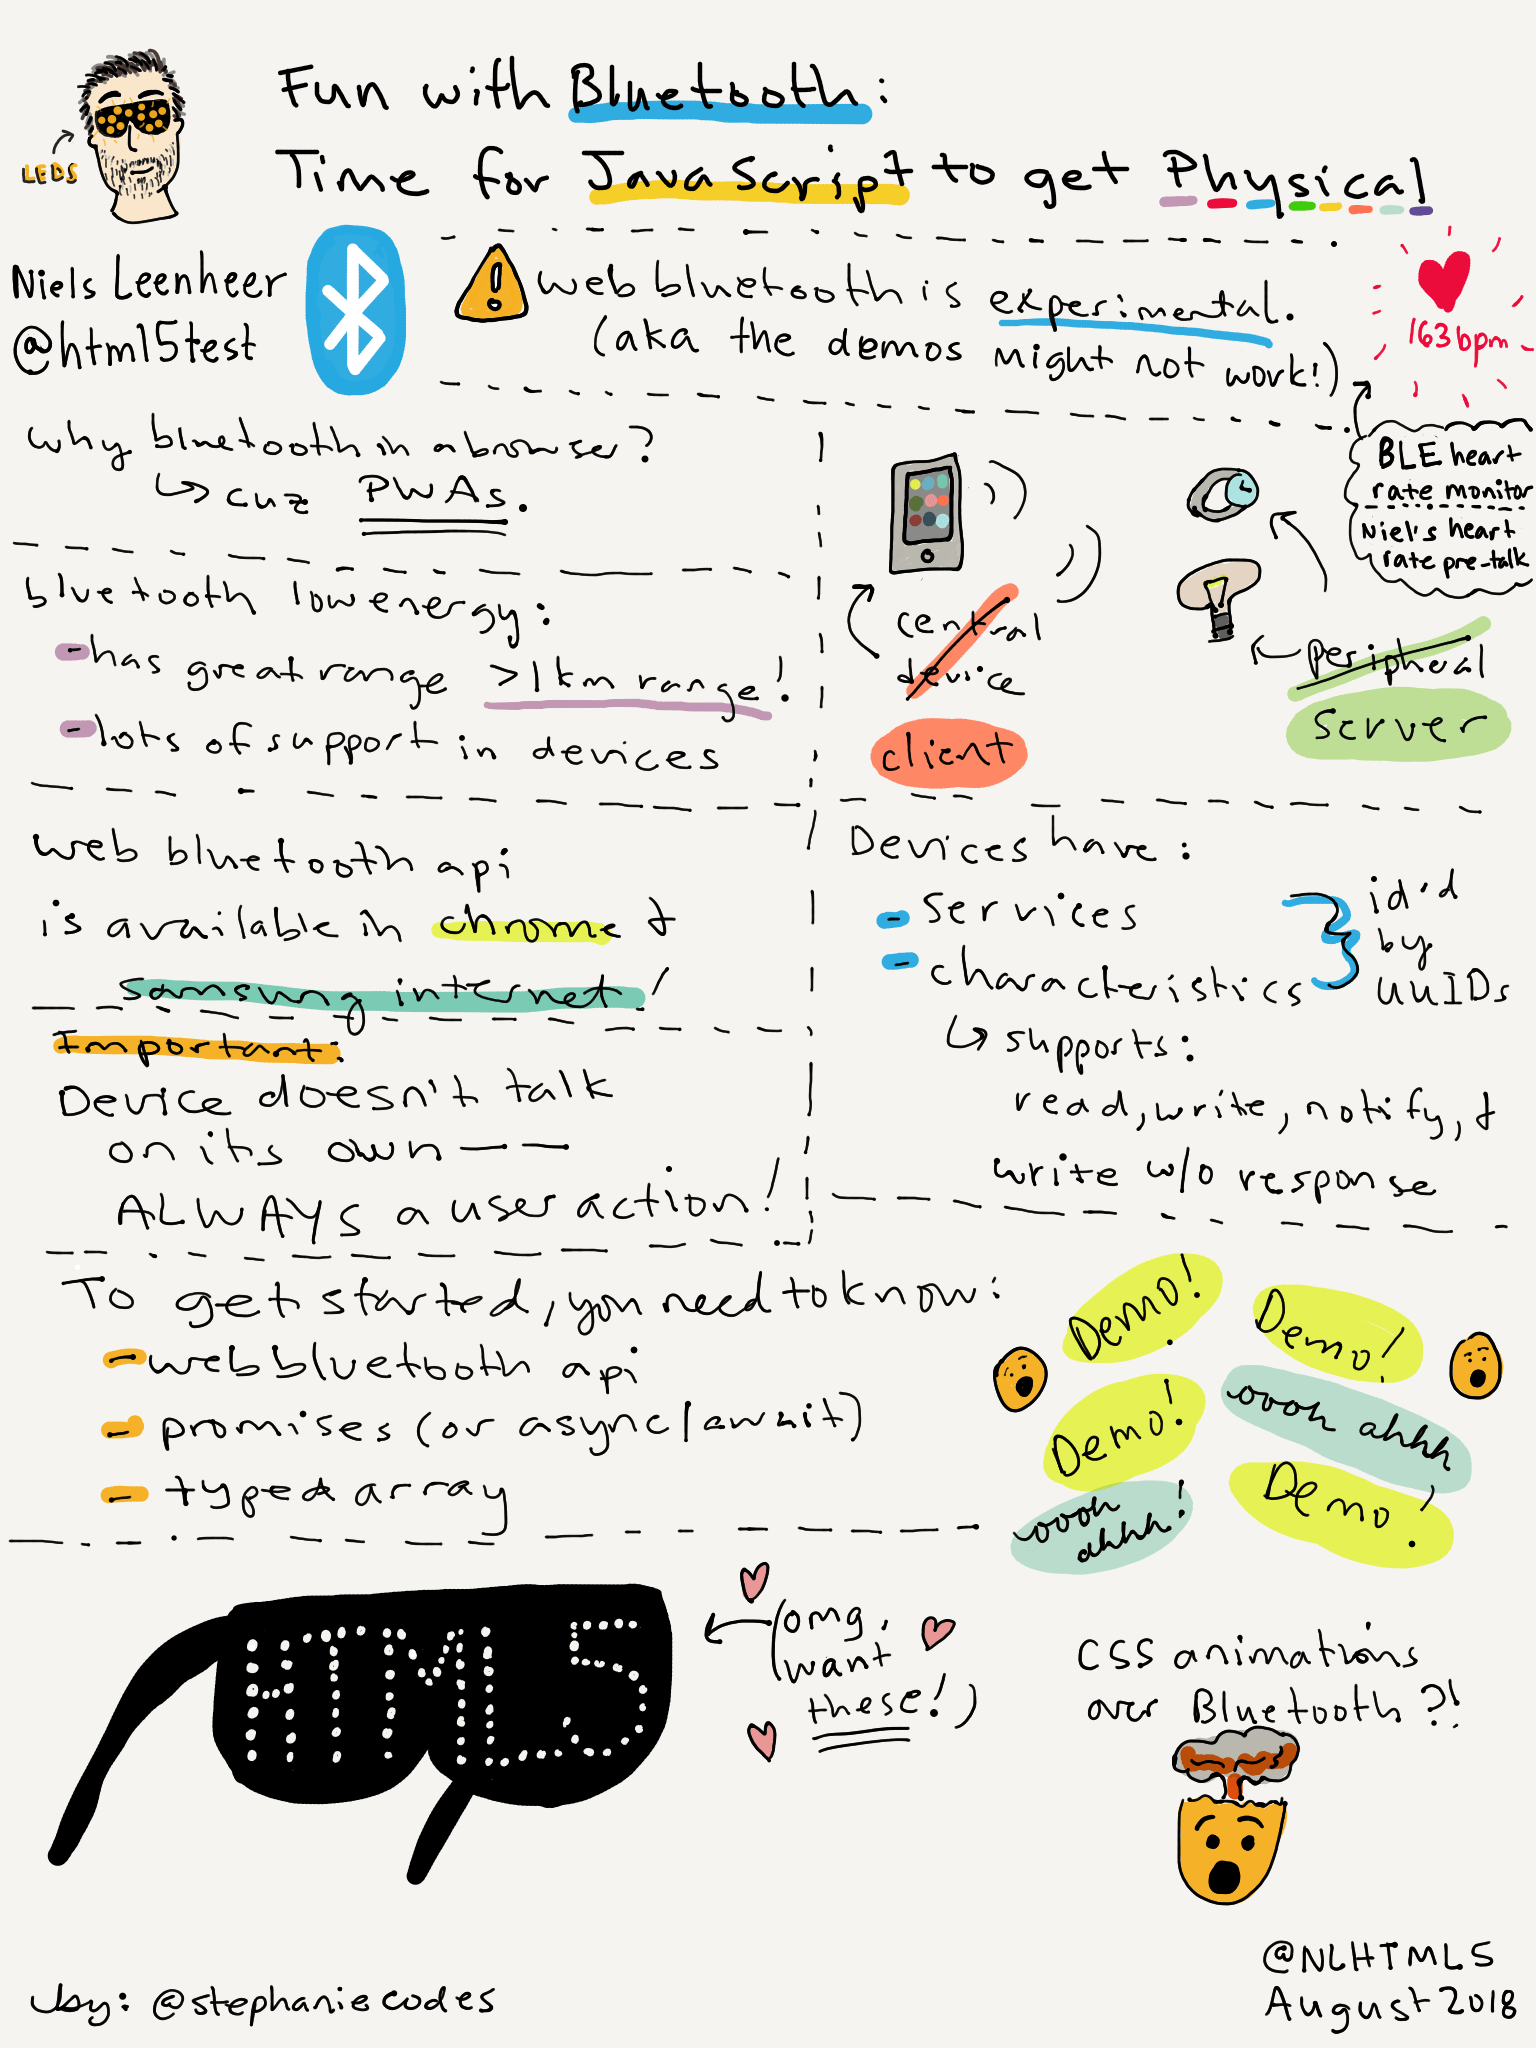 Fun with Bluetooth:
Time for JavaScript to get Physical
LEDS
Niels Leenheer
@html5test
web bluetooth is experimental.
(aka the demos might not work!)
163bpm
BLE heart
rate monitor
Niel's heart
rate pre-talk
why bluetooth in a browser?
↳ cuz PWAs.
bluetooth low energy:
- has great range >1km range!
- lots of support in devices
central
device
client
peripheral
server
web bluetooth api
is available in chrome &
samsung internet!
Important:
Device doesn't talk
on its own——
ALWAYS a user action!
Devices have:
- services
- characteristics
id'd
by
UUIDs
↳ supports:
read, write, notify, &
write w/o response
To get started, you need to know:
- web bluetooth api
- promises (or async/await)
- typed array
Demo!
Demo!
Demo!
oooh ahhh
oooh
ahhh!
Demo!
HTML5
(omg,
want
these!)
CSS animations
over Bluetooth?!
by: @stephaniecodes
@NLHTML5
August 2018